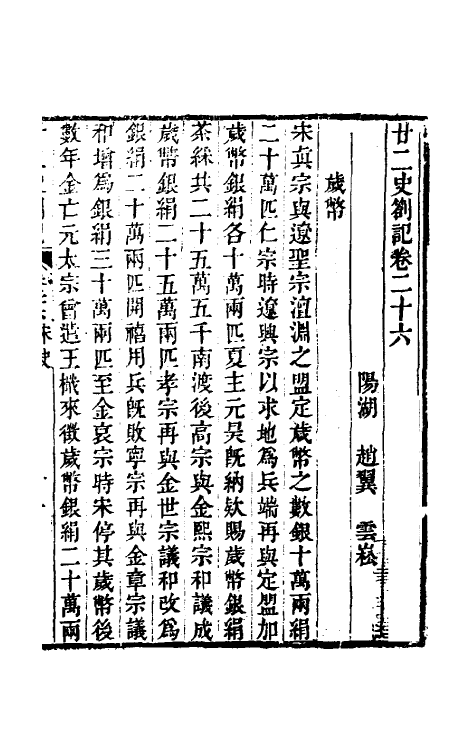 廿二史劄記卷二十六
陽湖 趙翼 雲崧
歲幣
宋真宗與遼聖宗澶淵之盟定歲幣之數銀十萬兩絹
二十萬匹仁宗時遼興宗以求地為兵端再與定盟加
歲幣銀絹各十萬兩匹夏主元昊既納欵賜歲幣銀絹
茶綵共二十五萬五千南渡後高宗與金熙宗和議成
歲幣銀絹二十五萬兩匹孝宗再與金世宗議和改為
銀絹二十萬兩匹開禧用兵既敗寧宗再與金章宗議
和增為銀絹三十萬兩匹至金哀宗時宋停其歲幣後
數年金亡元太宗曾造王檝來徵歲幣銀絹二十萬兩